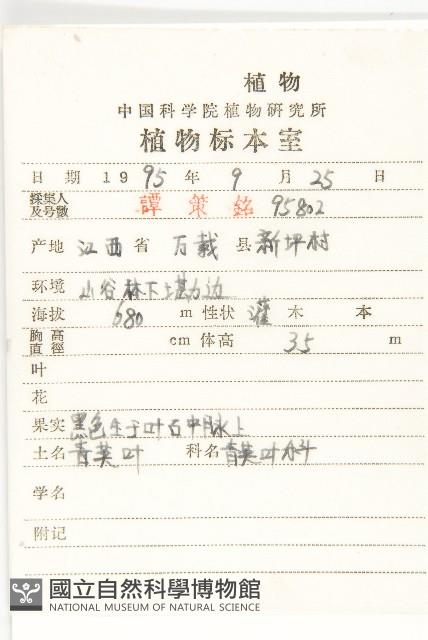 植物
中国科学院植物研究所
植物标本室
日期 1995年9月25日
採集人及号數 譚策銘 95802
产地 江西省 万载县 新坪村
环境 山谷林下土墈边
海拔 680 m 性状 灌木 本
胸高直徑 cm 体高 3.5 m
叶
花
果实 黑色生于叶古中脉上
土名 青荚叶 科名 青荚叶科
学名
附记
國立自然科學博物館
NATIONAL MUSEUM OF NATURAL SCIENCE